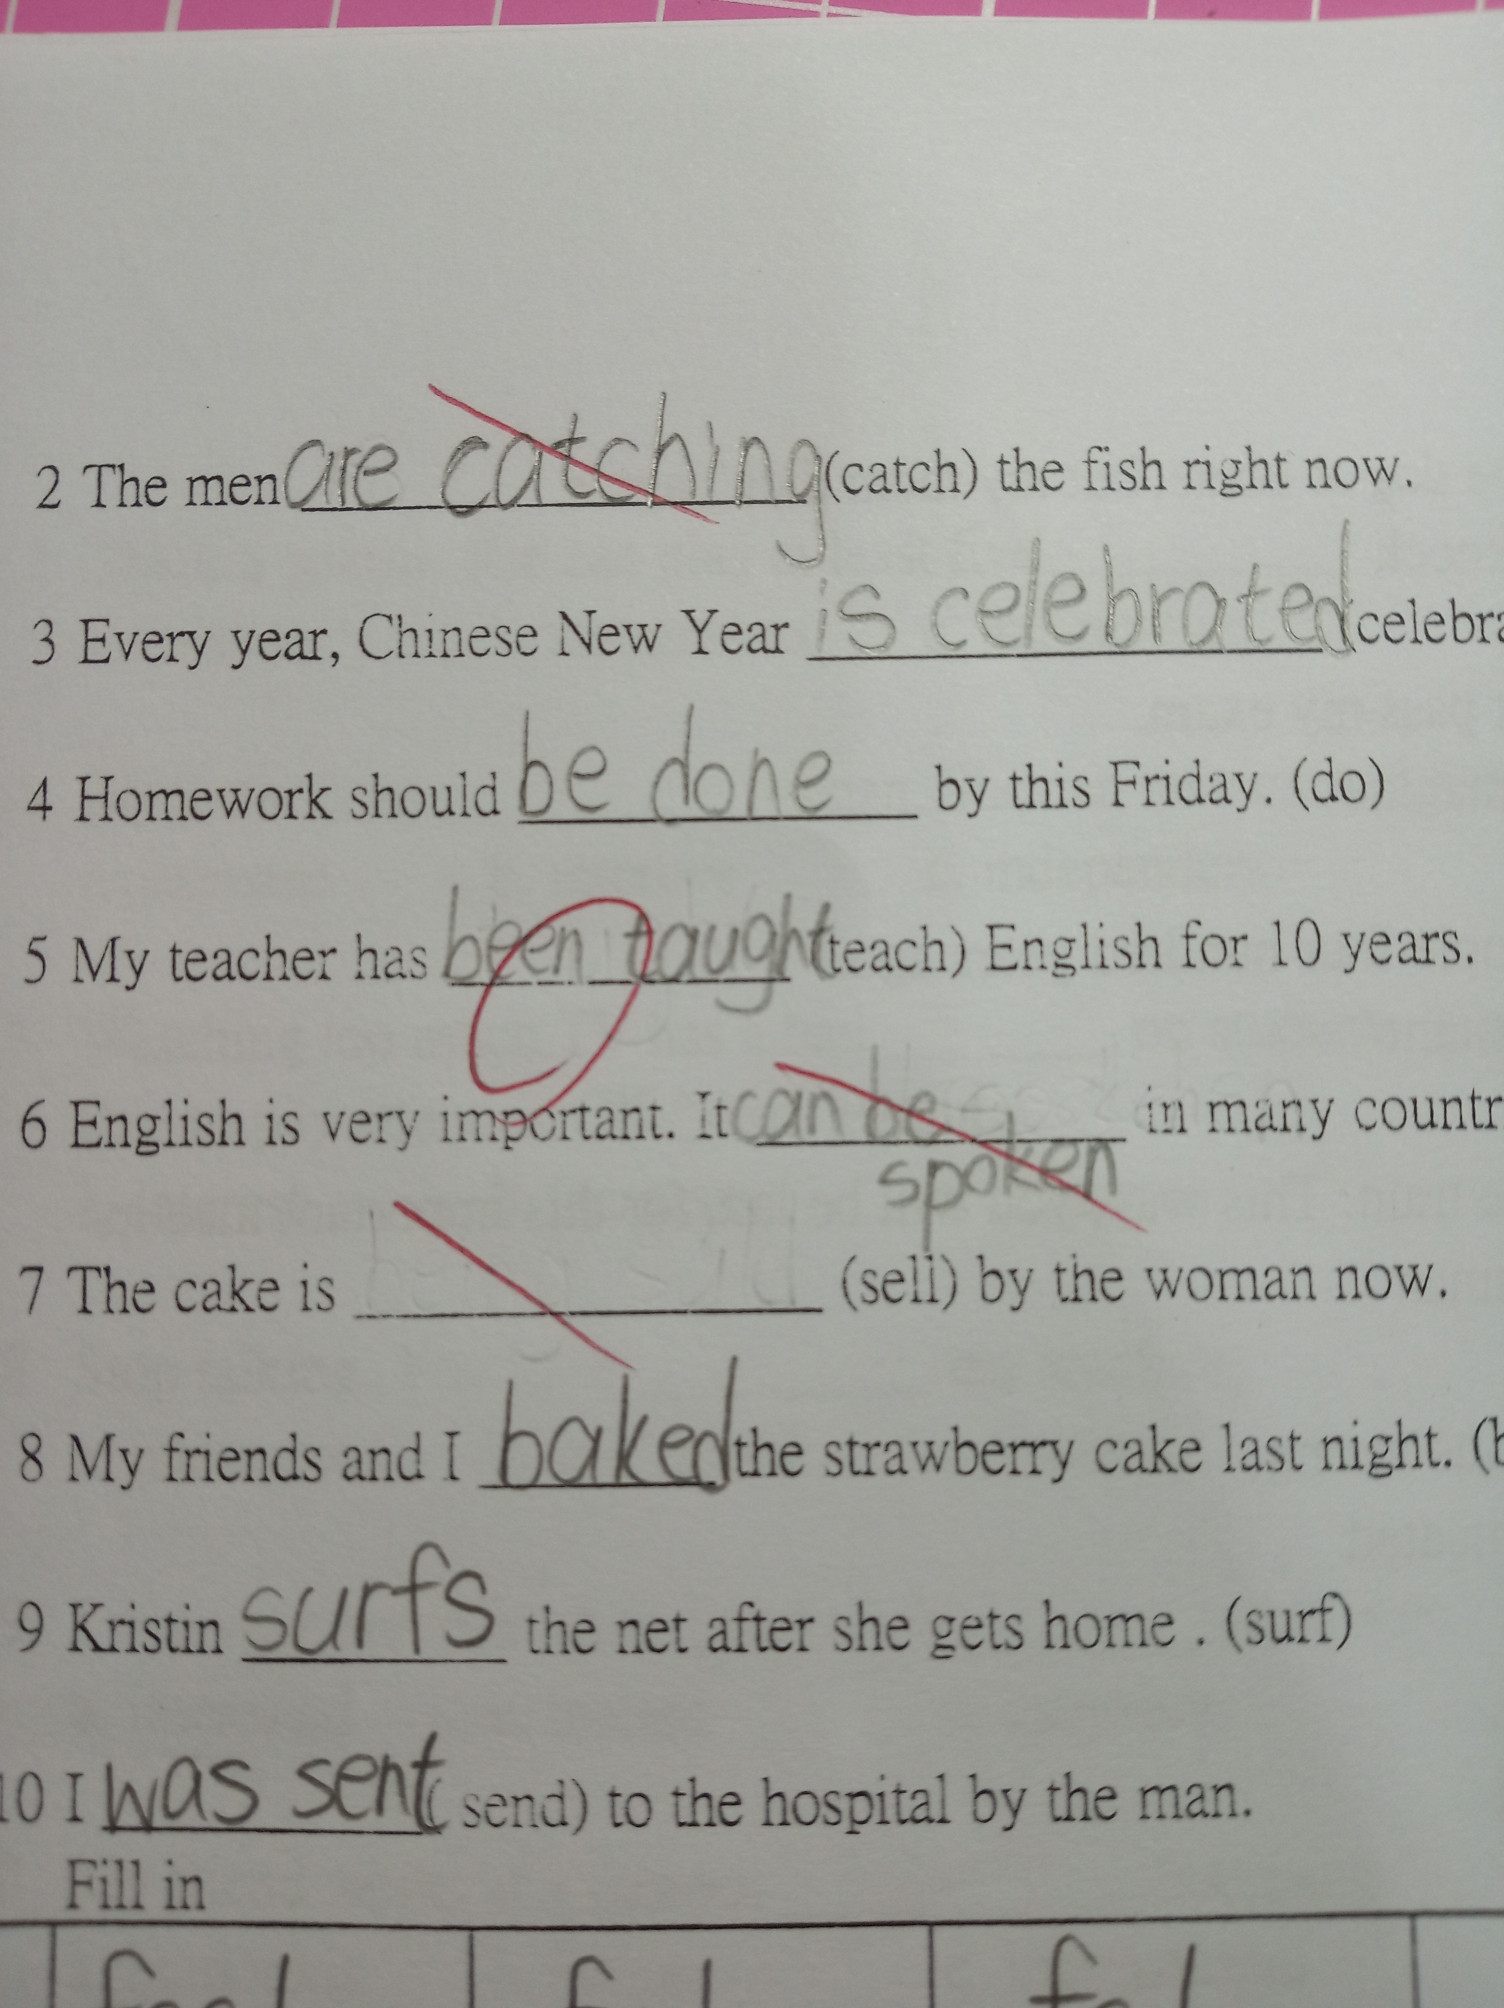 2 The men are catching (catch) the fish right now.
3 Every year, Chinese New Year is celebrated (celebra
4 Homework should be done by this Friday. (do)
5 My teacher has been taught (teach) English for 10 years.
6 English is very important. It can be spoken in many countr
7 The cake is (sell) by the woman now.
8 My friends and I baked the strawberry cake last night. (b
9 Kristin surfs the net after she gets home . (surf)
10 I was sent ( send) to the hospital by the man.
Fill in